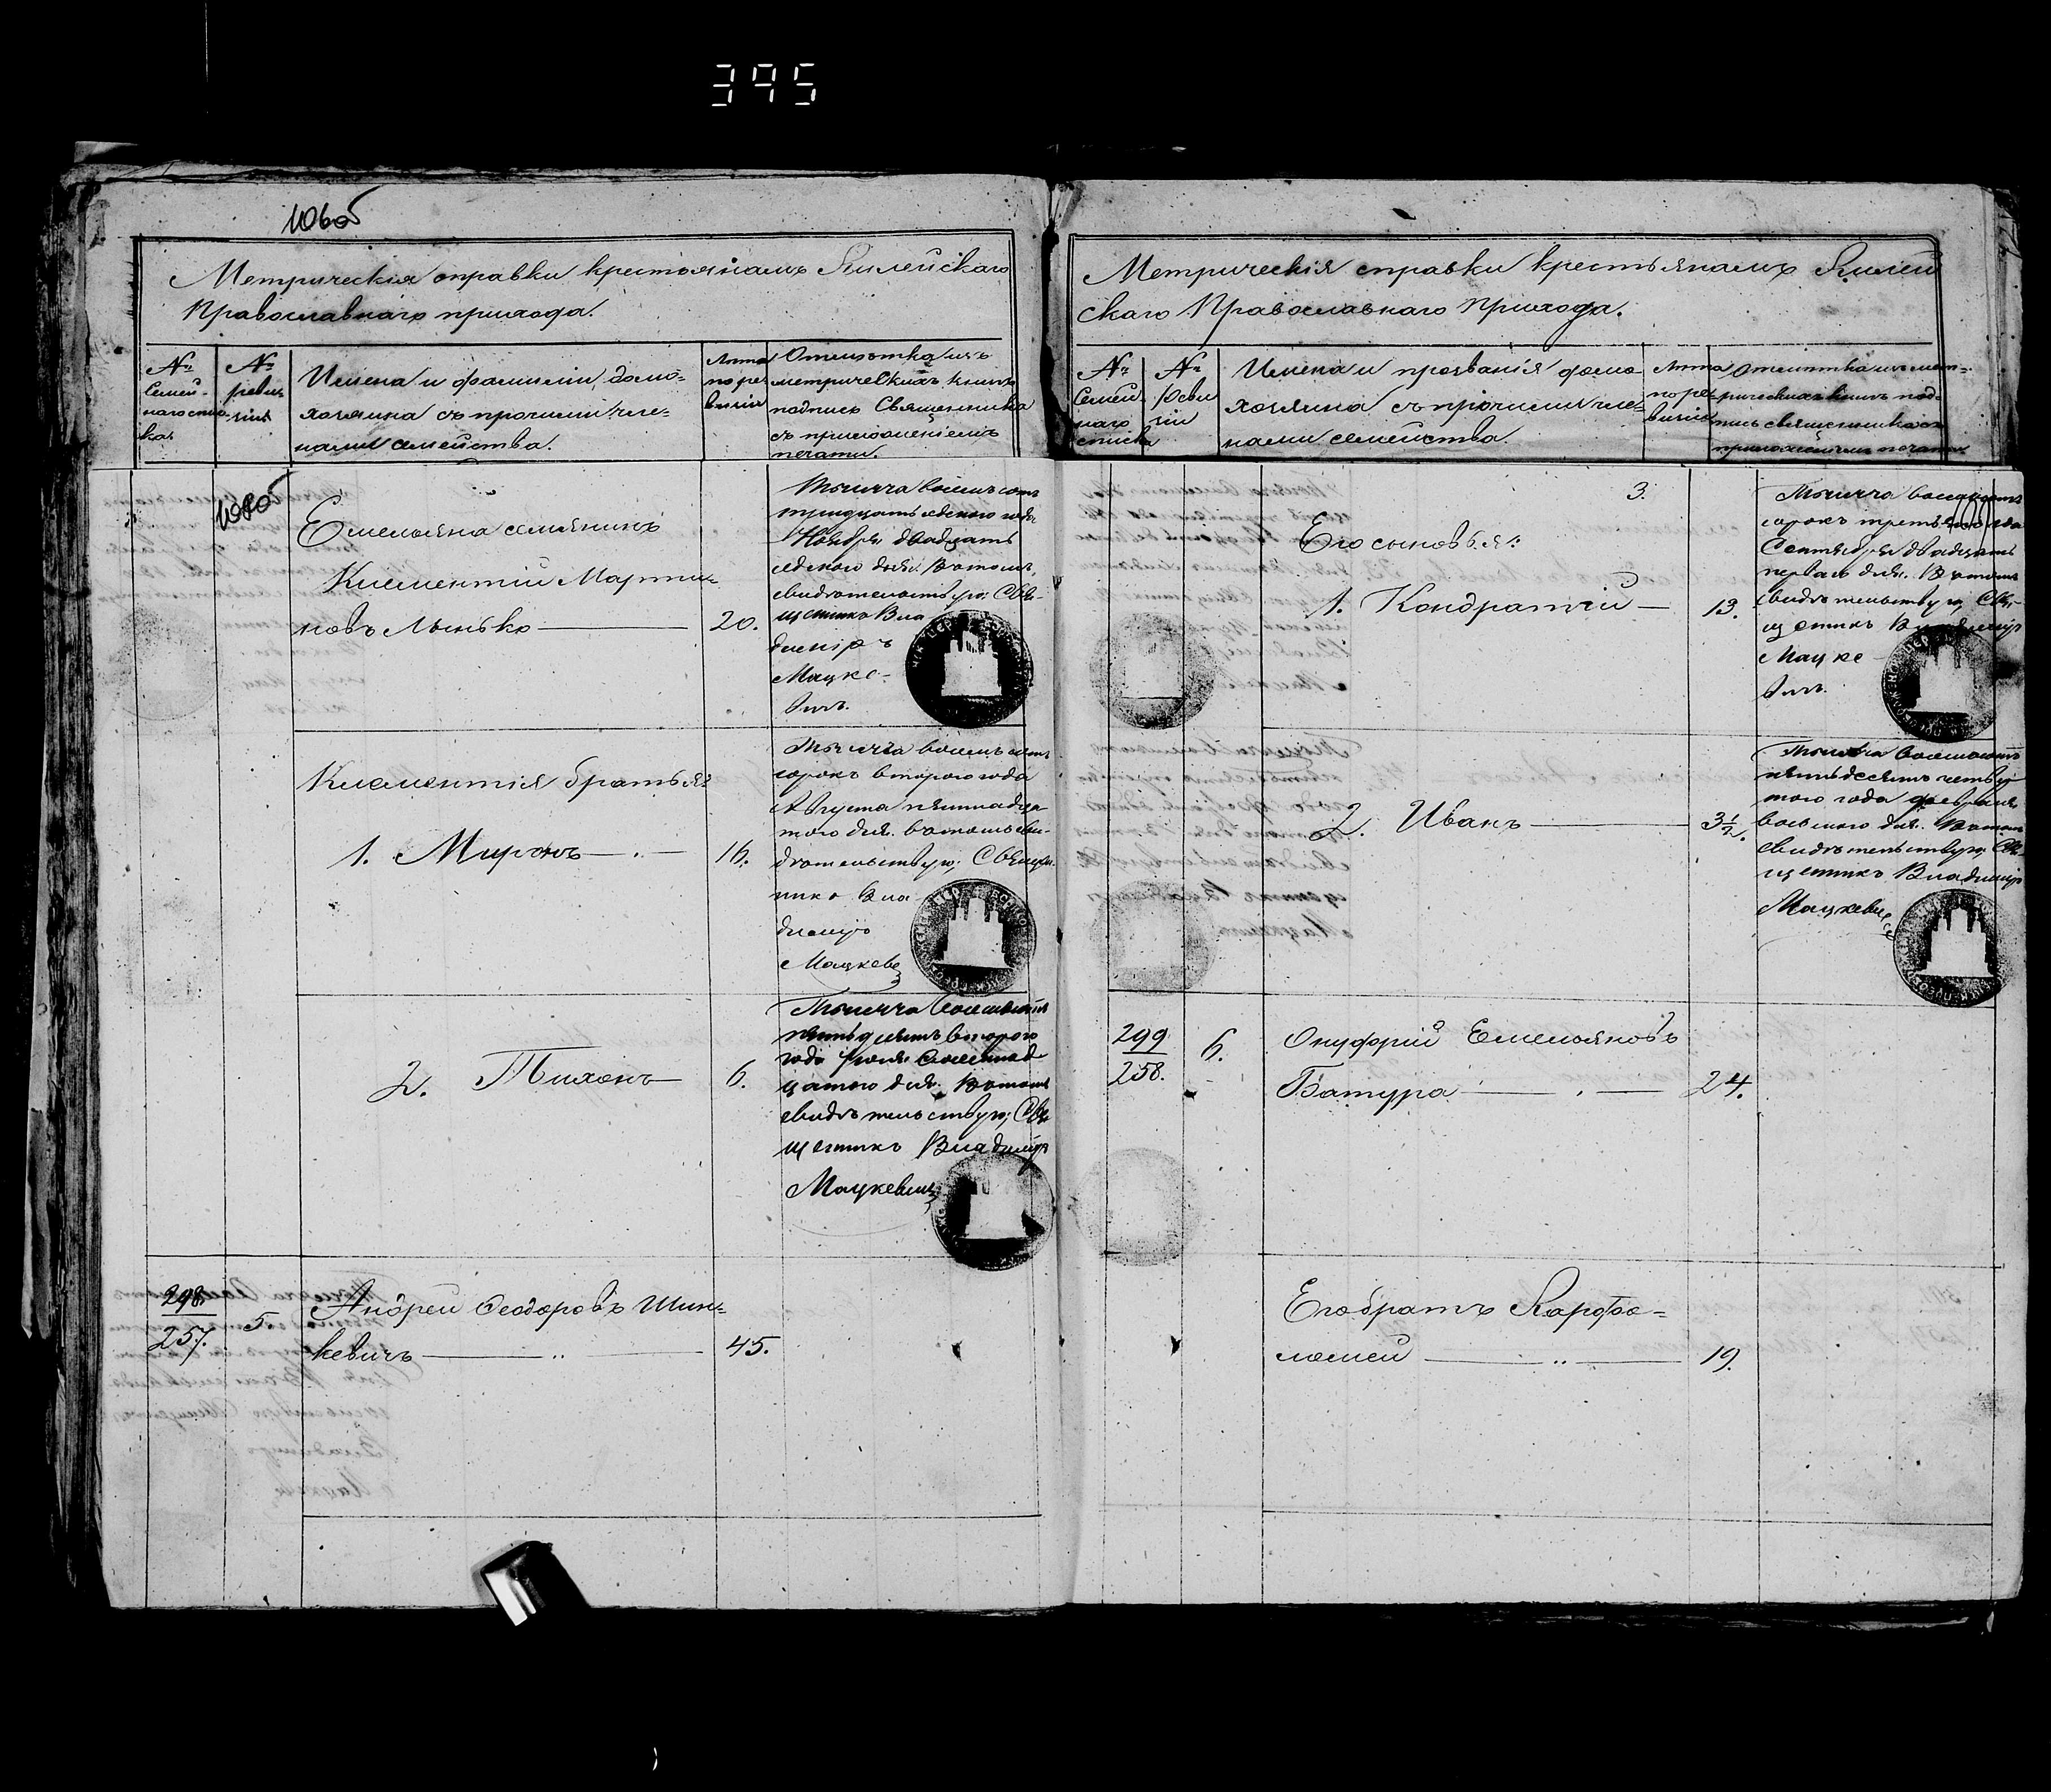 395
106об
Метрическія справки крестьянамъ Килейскаго
Православнаго прихода.
№
Семей-
наго спис-
ка
№
реви-
зіи
Имена и фамиліи домо-
хозяина съ прочими чле-
нами семейства.
Лѣта
по ре
визіи
Отмѣтка изъ
метрическихъ книгъ
подпись Священника
съ приложеніемъ
печати.
108об
Емельяна семьянинъ
Климентій Марти-
новъ Лынько 20.
Тысяча восемьсотъ
тридцать седьмого года
Ноября двадцать
седьмого дня. Въ томъ
свидѣтельствую; Свя-
щенникъ Вла
димиръ
Мацке-
вичъ.
Климентія братья:
1. Миронъ 16.
Тысяча восемьсотъ
сорокъ второго года
Августа пятнадца
таго дня. Въ томъ сви-
дѣтельствую; Священ
никъ Вла
димиръ
Мацкеви
2. Тихонъ 6.
Тысяча восемьсотъ
пятьдесятъ второго
года Іюня
цатаго дня. Въ томъ
свидѣтельствую; Свя
щенникъ Владимиръ
Мацкевичъ
298.
257.
5.
Андрей Феодоровъ Шин-
кевичъ 45.
Метрическія справки крестьянамъ Килей
скаго Православнаго Прихода.
№
Семей
наго
списка
№
Реви
зіи
Имена и прозванія домо
хозяина съ прочими чле-
нами семейства.
Лѣта
по ре-
визіи
Отмѣтка изъ мет-
рическихъ книгъ под-
пись священника съ
приложеніемъ печати
3.
Его сыновья:
1. Кондратій 13.
Тысяча восемьсотъ
сорокъ третьяго года
Сентября двадцать
перваго дня. Въ томъ
свидѣтельствую; Свя-
щенникъ Владимиръ
Мацке
вичъ.
2. Иванъ 3½.
Тысяча восемьсотъ
пятьдесятъ четвер
таго года Февраля
восьмого дня. Въ томъ
свидѣтельствую; Свя-
щенникъ Владимиръ
Мацкевич
299
258.
6.
Онуфрій Емельяновъ
Батура 24.
Его братъ Варфо-
ломей 19.